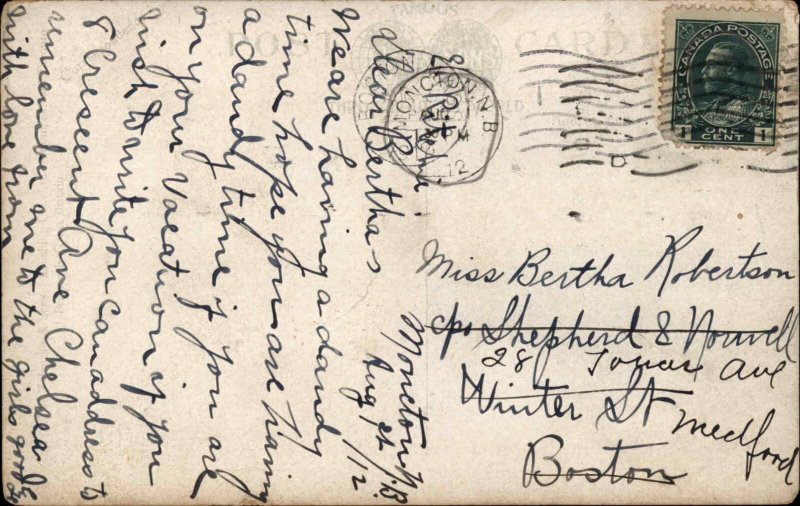 FAMOUS
POST CARD
MONCTON, N.B.
12
CANADA POSTAGE
1 ONE CENT 1
Moncton N.B.
Aug 1st /12
Dear Bertha
We are having a dandy
time hope you are having
a dandy time if you are
on your Vacation if you
wish to write you can address to
8 Crescent Ave Chelsea
remember me to the girls
with love from
Miss Bertha Robertson
c/o Shepherd & Norwell
28 Ave
Winter St Medford
Boston